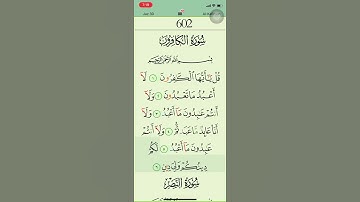 602
سُورَةُ الْكَافِرُونَ
بِسْمِ اللَّهِ الرَّحْمَٰنِ الرَّحِيمِ
قُلْ يَا أَيُّهَا الْكَافِرُونَ ١ لَا
أَعْبُدُ مَا تَعْبُدُونَ ٢ وَلَا
أَنتُمْ عَابِدُونَ مَا أَعْبُدُ ٣ وَلَا
أَنَا عَابِدٌ مَّا عَبَدتُّمْ ٤ وَلَا أَنتُمْ
عَابِدُونَ مَا أَعْبُدُ ٥ لَكُمْ
دِينُكُمْ وَلِيَ دِينِ ٦
سُورَةُ النَّصْرِ